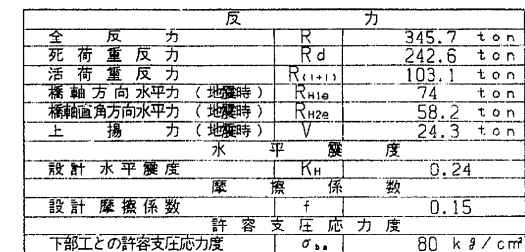 反 力
全 反 力 R 345.7 ton
死荷重反力 Rd 242.6 ton
活荷重反力 R(l+i) 103.1 ton
橋軸方向水平力（地震時） RH1e 74 ton
橋軸直角方向水平力（地震時） RH2e 58.2 ton
上 揚 力（地震時） V 24.3 ton
水 平 震 度
設計水平震度 KH 0.24
摩 擦 係 数
設計摩擦係数 f 0.15
許容支圧応力度
下部工との許容支圧応力度 σba 80 kg/cm²